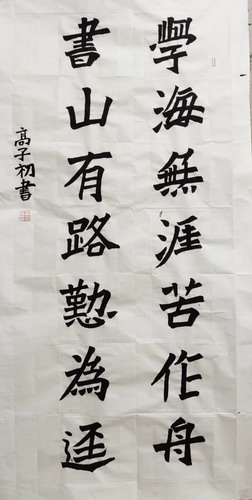 學海無涯苦作舟
書山有路懃為逕
高子初書